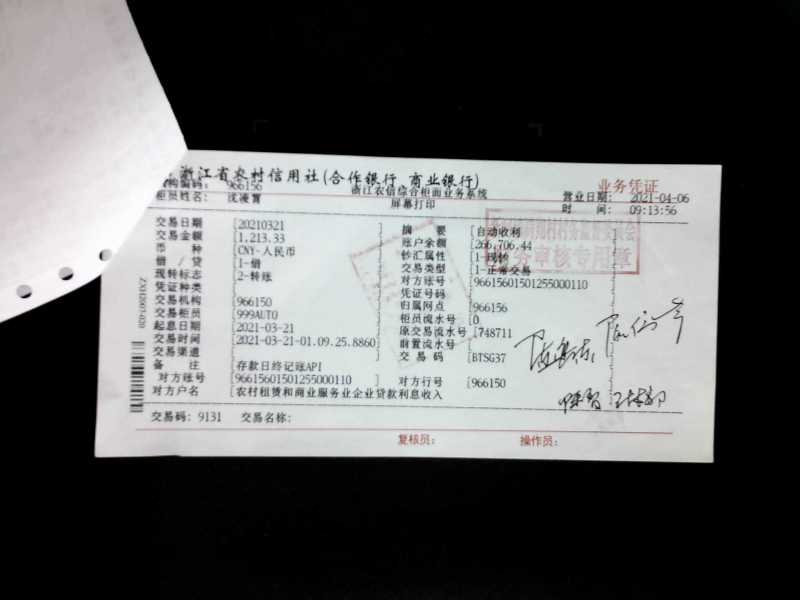 浙江省农村信用社(合作银行 商业银行)
业务凭证
机构编码: 966156 浙江农信综合柜面业务系统 营业日期: 2021-04-06
柜员姓名: 沈凌霄 屏幕打印 时 间: 09:13:56
交易日期 [20210321 摘 要 [自动收利
交易金额 [1,213.33 账户余额 [266,706.44
币 种 [CNY-人民币 钞汇属性 [1-现钞
借 / 贷 [1-借 交易类型 [1-正常交易
现转标志 [2-转账 对方账号 [96615601501255000110 ]
凭证种类 [ 凭证号码 [
交易机构 [966150 归属网点 [966156
交易柜员 [999AUTO 柜员流水号 [0
起息日期 [2021-03-21 原交易流水号 [748711
交易时间 [2021-03-21-01.09.25.8860] 前置流水号 [
交易渠道 [ ] 交 易 码 [BTSG37
备 注 [存款日终记账API
对方账号 [96615601501255000110 ] 对方行号 [966150
对方户名 [农村租赁和商业服务业企业贷款利息收入
交易码: 9131 交易名称:
复核员: 操作员:
务审核专用章